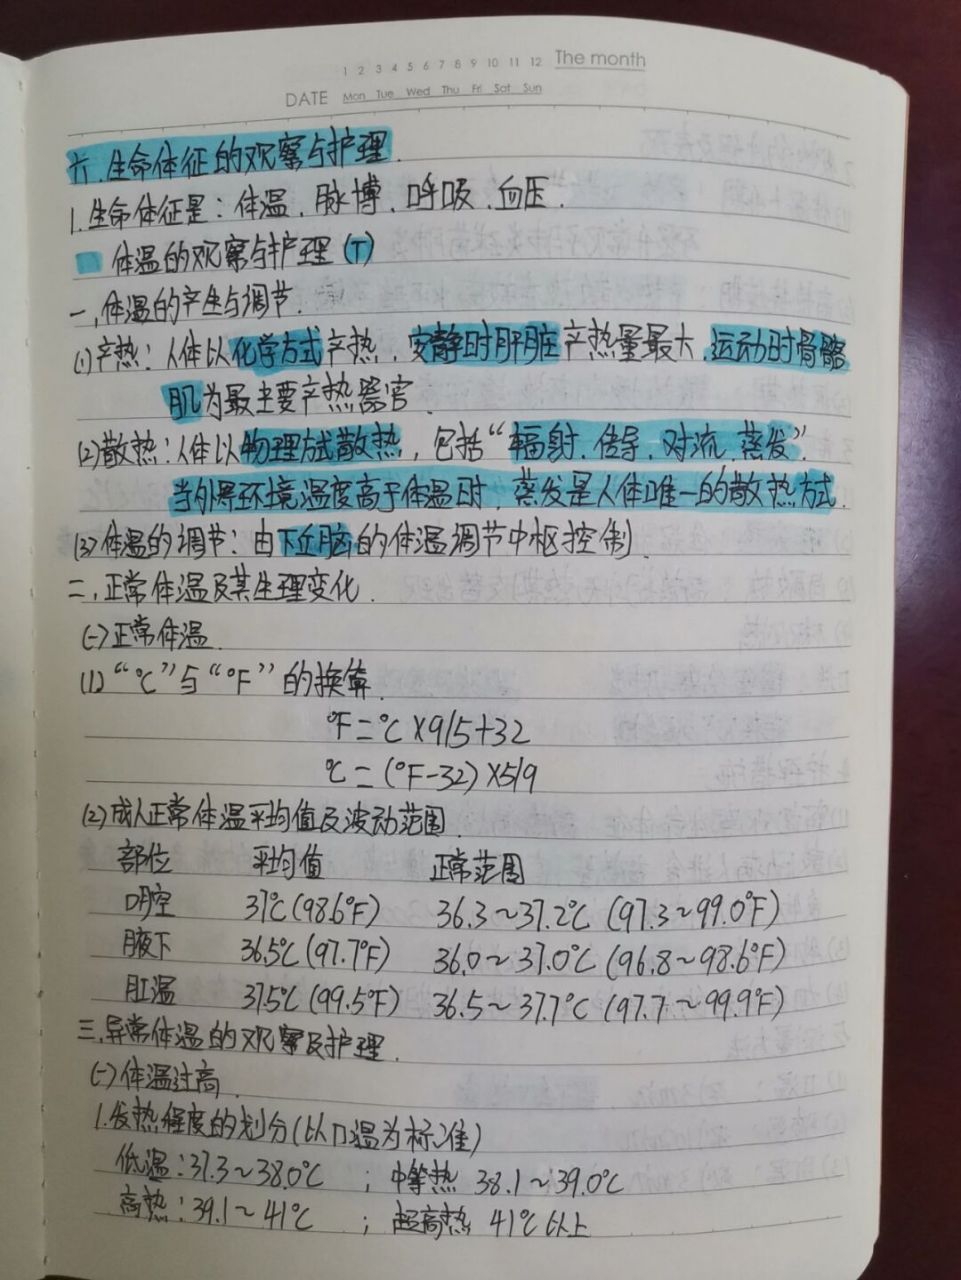 1 2 3 4 5 6 7 8 9 10 11 12 The month
DATE Mon Tue Wed Thu Fri Sat Sun
六.生命体征的观察与护理.
1.生命体征是:体温、脉搏、呼吸、血压.
体温的观察与护理(T)
一、体温的产生与调节.
(1)产热:人体以化学方式产热,安静时肝脏产热量最大,运动时骨骼
肌为最主要产热器官.
(2)散热:人体以物理方式散热,包括“辐射、传导、对流、蒸发”.
当外界环境温度高于体温时,蒸发是人体唯一的散热方式.
(3)体温的调节:由下丘脑的体温调节中枢控制.
二、正常体温及其生理变化.
(一)正常体温.
(1)“℃”与“℉”的换算.
℉=℃×9/5+32
℃=(℉-32)×5/9
(2)成人正常体温平均值及波动范围.
部位 平均值 正常范围
口腔 37℃(98.6℉) 36.3~37.2℃(97.3~99.0℉)
腋下 36.5℃(97.7℉) 36.0~37.0℃(96.8~98.6℉)
肛温 37.5℃(99.5℉) 36.5~37.7℃(97.7~99.9℉)
三、异常体温的观察及护理.
(一)体温过高.
1.发热程度的划分(以口温为标准)
低温:37.3~38.0℃ ;中等热 38.1~39.0℃
高热:39.1~41℃ ;超高热 41℃以上